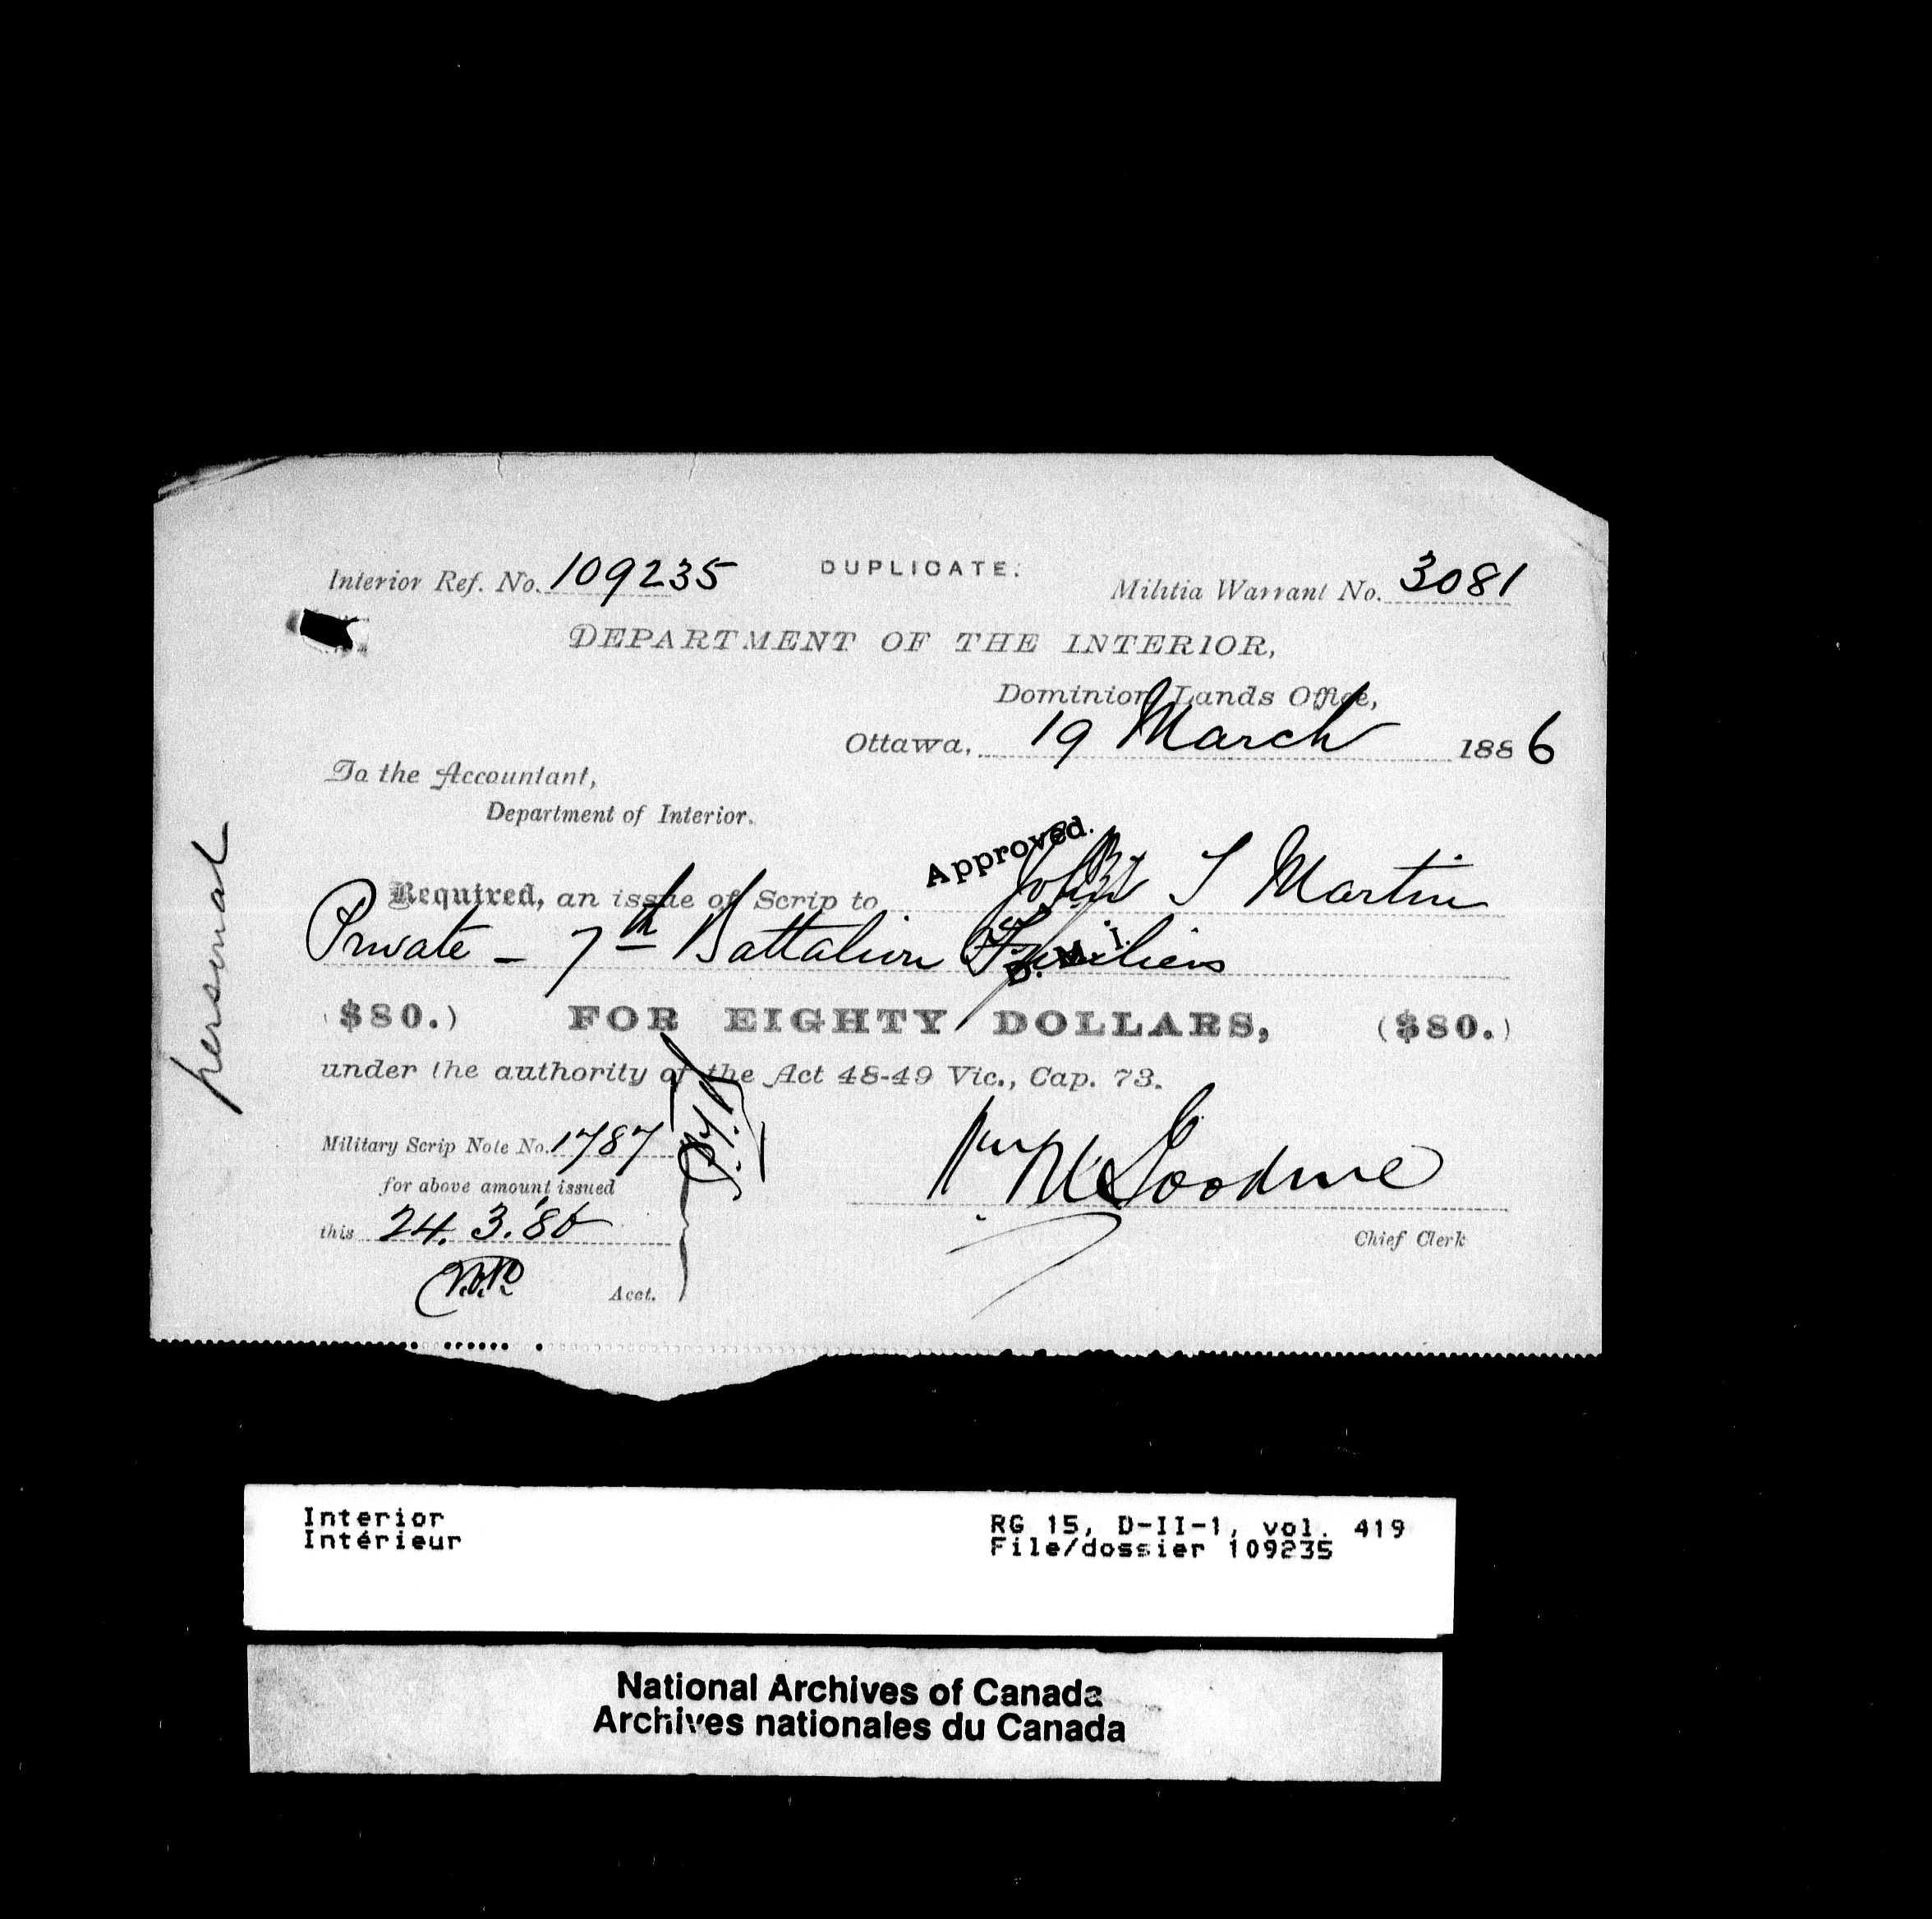 Interior Ref. No. 109235 DUPLICATE. Militia Warrant No. 3081
DEPARTMENT OF THE INTERIOR,
Dominion Lands Office,
Ottawa, 19 March 1886
To the Accountant,
Department of Interior.
Approved.
Required, an issue of Scrip to John T Martin
Private - 7th Battalion Fusiliers
($80.) FOR EIGHTY DOLLARS, ($80.)
under the authority of the Act 48-49 Vic., Cap. 73.
Military Scrip Note No. 1787
for above amount issued
this 24.3.'86
Chief Clerk
Acct.
personal
Interior
Intérieur
RG 15, D-II-1, vol. 419
File/dossier 109235
National Archives of Canada
Archives nationales du Canada